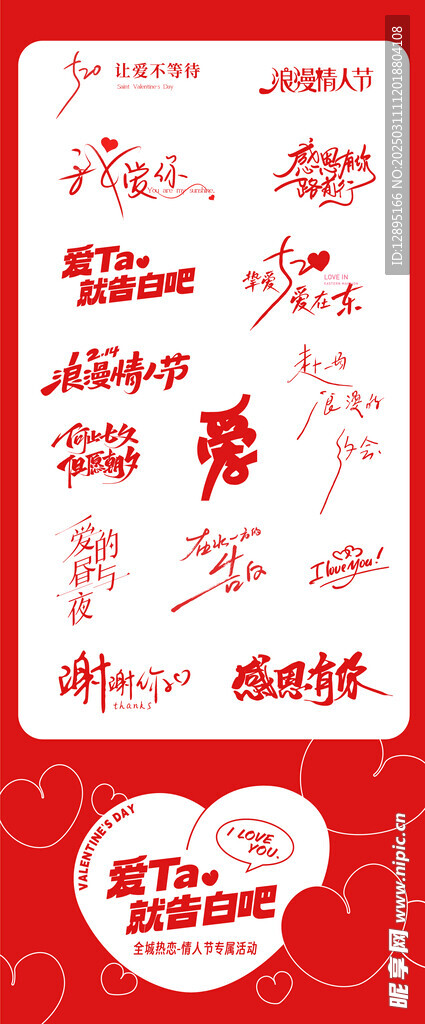 520 让爱不等待
Saint Valentine's Day
浪漫情人节
我爱你
You are my sunshine.
感恩有你
一路前行
爱Ta
就告白吧
挚爱520
LOVE IN
爱在东
2.14
浪漫情人节
赴一场
浪漫的
约会
何止七夕
但愿朝夕
爱
爱的
昼与
夜
在水一方的
告白
I love you!
谢谢你
thanks
感恩有你
VALENTINE'S DAY
I LOVE
YOU.
爱Ta
就告白吧
全城热恋-情人节专属活动
ID:12895166 NO:20250311112018804108
昵享网 www.nipic.cn